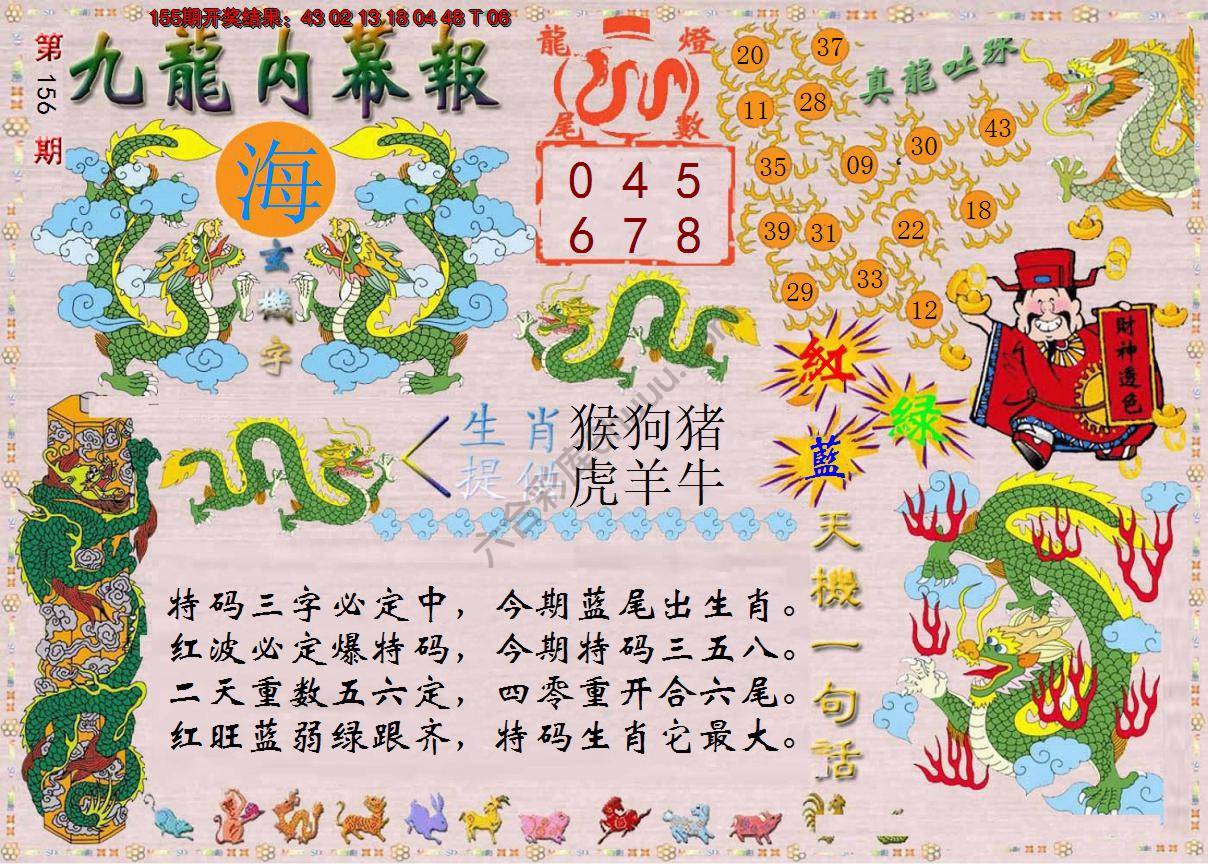 155期开奖结果：43 02 13 18 04 48 T 06
第156期
九龍内幕報
海
玄機字
龍燈
尾數
0 4 5
6 7 8
真龍吐珠
20 37
11 28
35 09 30 43
39 31 22 18
29 33 12
財神透色
紅
綠
藍
生肖 猴狗猪
提供 虎羊牛
天機一句話
特码三字必定中，今期蓝尾出生肖。
红波必定爆特码，今期特码三五八。
二天重数五六定，四零重开合六尾。
红旺蓝弱绿跟齐，特码生肖它最大。